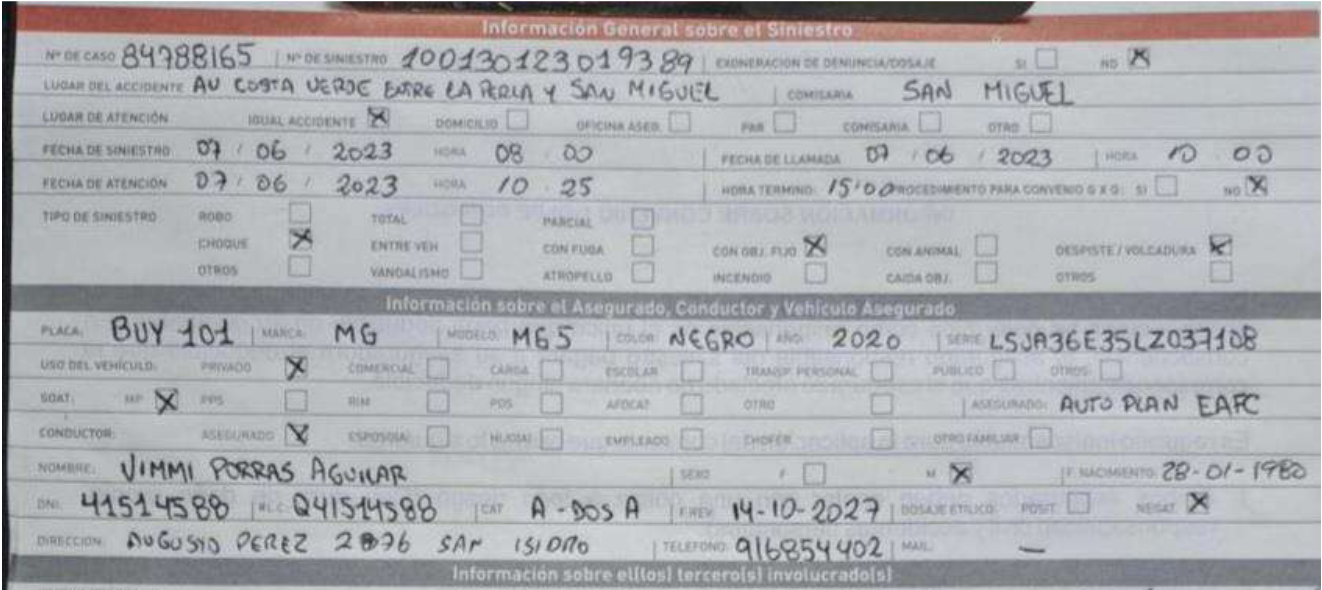 Información General sobre el Siniestro
Nº DE CASO 84788165 Nº DE SINIESTRO 100130123019389 EXONERACIÓN DE DENUNCIA/DOSAJE SI NO X
LUGAR DEL ACCIDENTE AV COSTA VERDE ENTRE LA PERLA Y SAN MIGUEL COMISARIA SAN MIGUEL
LUGAR DE ATENCIÓN IGUAL ACCIDENTE X DOMICILIO OFICINA ASEG. PAR COMISARIA OTRO
FECHA DE SINIESTRO 07 / 06 / 2023 HORA 08 : 00 FECHA DE LLAMADA 07 / 06 / 2023 HORA 10 : 00
FECHA DE ATENCIÓN 07 / 06 / 2023 HORA 10 : 25 HORA TERMINO: 15:00 PROCEDIMIENTO PARA CONVENIO G X G: SI NO X
TIPO DE SINIESTRO ROBO TOTAL PARCIAL
CHOQUE X ENTRE VEH CON FUGA CON OBJ. FIJO X CON ANIMAL DESPISTE / VOLCADURA X
OTROS VANDALISMO ATROPELLO INCENDIO CAIDA OBJ. OTROS
Información sobre el Asegurado, Conductor y Vehículo Asegurado
PLACA: BUY 101 MARCA: MG MODELO: MG5 COLOR: NEGRO AÑO: 2020 SERIE: LSJA36E35LZ037108
USO DEL VEHÍCULO: PRIVADO X COMERCIAL CARGA ESCOLAR TRANSP. PERSONAL PUBLICO OTROS
SOAT: MP X PPS RIM POS AFOCAT OTRO ASEGURADO: AUTO PLAN EAFC
CONDUCTOR: ASEGURADO X ESPOSO(A) HIJO(A) EMPLEADO CHOFER OTRO FAMILIAR
NOMBRE: VIMMI PORRAS AGUILAR SEXO F M X F. NACIMIENTO: 28-01-1980
DNI: 41514588 Q41514588 CAT A-DOS A F.REV. 14-10-2027 DOSAJE ETILICO: POSIT. NEGAT. X
DIRECCION: AUGUSTO PEREZ 2076 SAN ISIDRO TELEFONO: 916854402 MAIL: —
Información sobre el(los) tercero(s) involucrado(s)